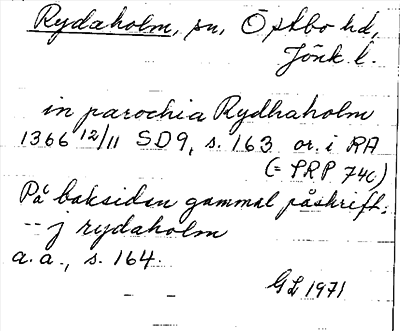 Rydaholm, sn, Östbo hd,
Jönk. l.
in parochia Rydhaholm
1366 12/11 SD9, s. 163 or. i RA
(= PRP 740)
På baksidan gammal påskrift:
-- j rydaholm
a.a., s. 164.
GL 1971